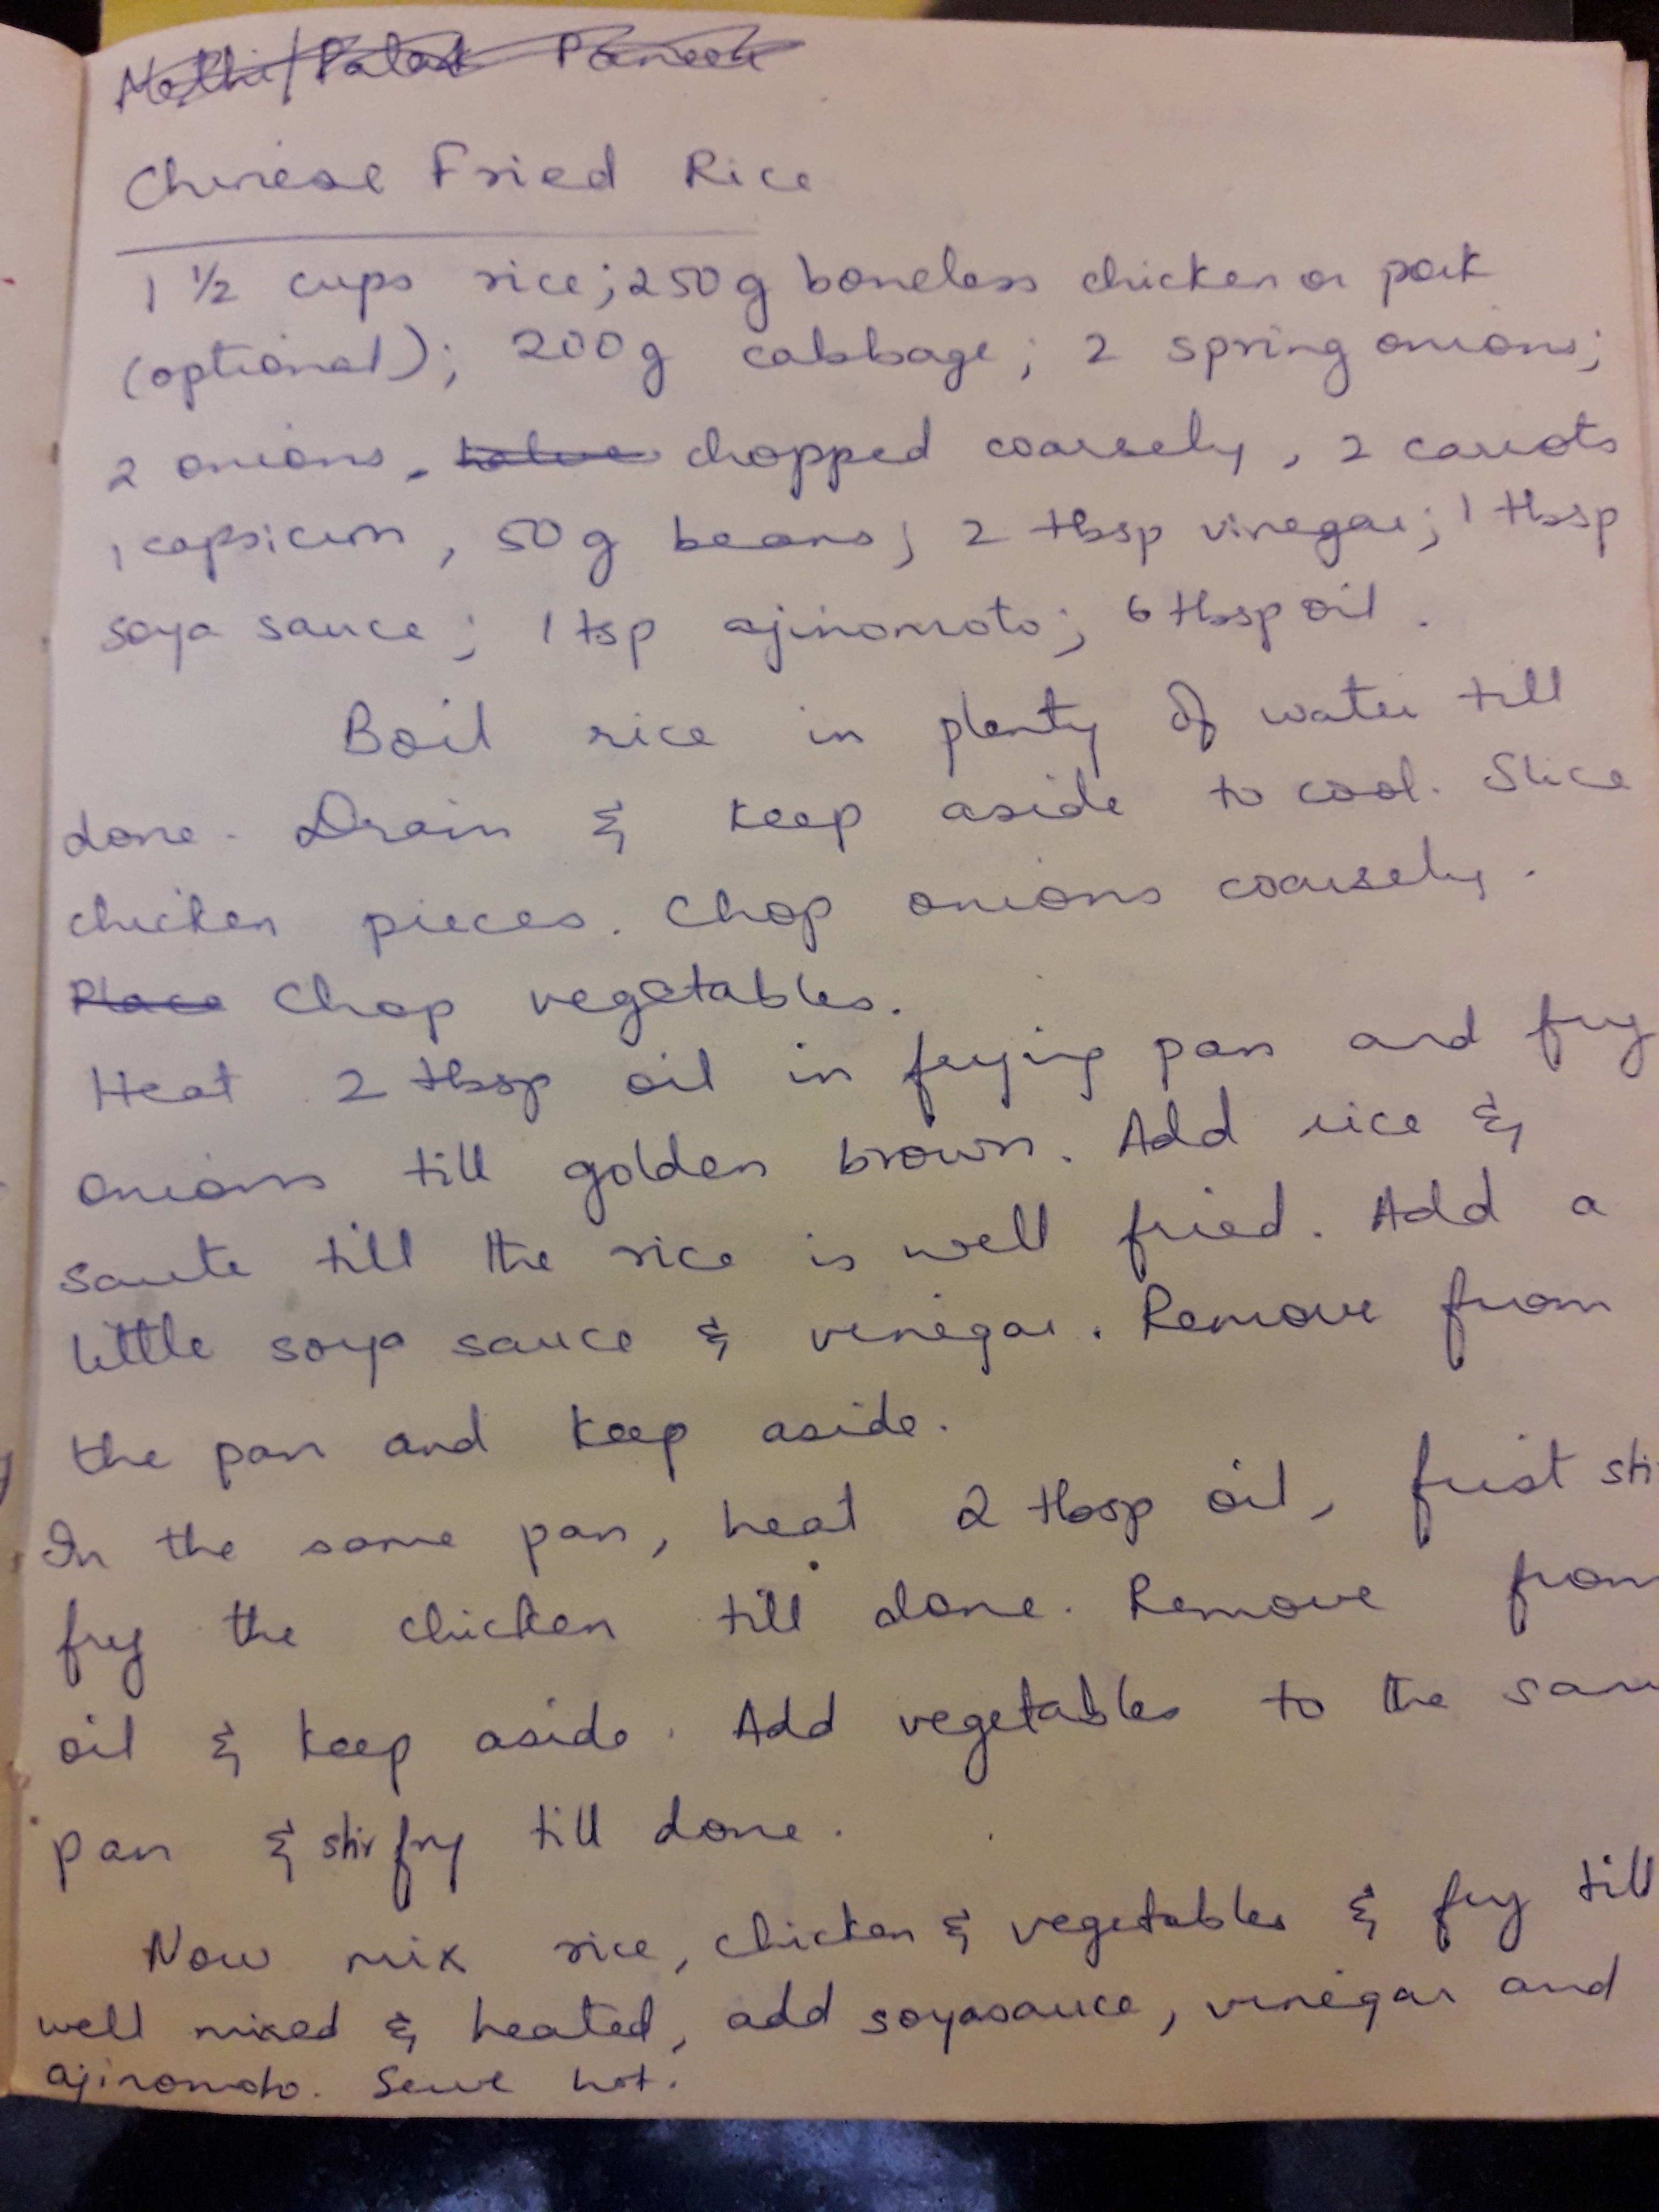 Methi/Palak Paneer
Chinese Fried Rice
1 1/2 cups rice; 250g boneless chicken or pork
(optional); 200g cabbage; 2 spring onions;
2 onions, chopped coarsely, 2 carrots
1 capsicum, 50g beans; 2 tbsp vinegar; 1 tbsp
soya sauce; 1 tsp ajinomoto; 6 tbsp oil.
Boil rice in plenty of water till
done. Drain & keep aside to cool. Slice
chicken pieces. Chop onions coarsely.
Place Chop vegetables.
Heat 2 tbsp oil in frying pan and fry
onions till golden brown. Add rice &
saute till the rice is well fried. Add a
little soya sauce & vinegar. Remove from
the pan and keep aside.
In the same pan, heat 2 tbsp oil, first sti
fry the chicken till done. Remove from
oil & keep aside. Add vegetables to the sam
pan & stir fry till done.
Now mix rice, chicken & vegetables & fry till
well mixed & heated, add soyasauce, vinegar and
ajinomoto. Serve hot.